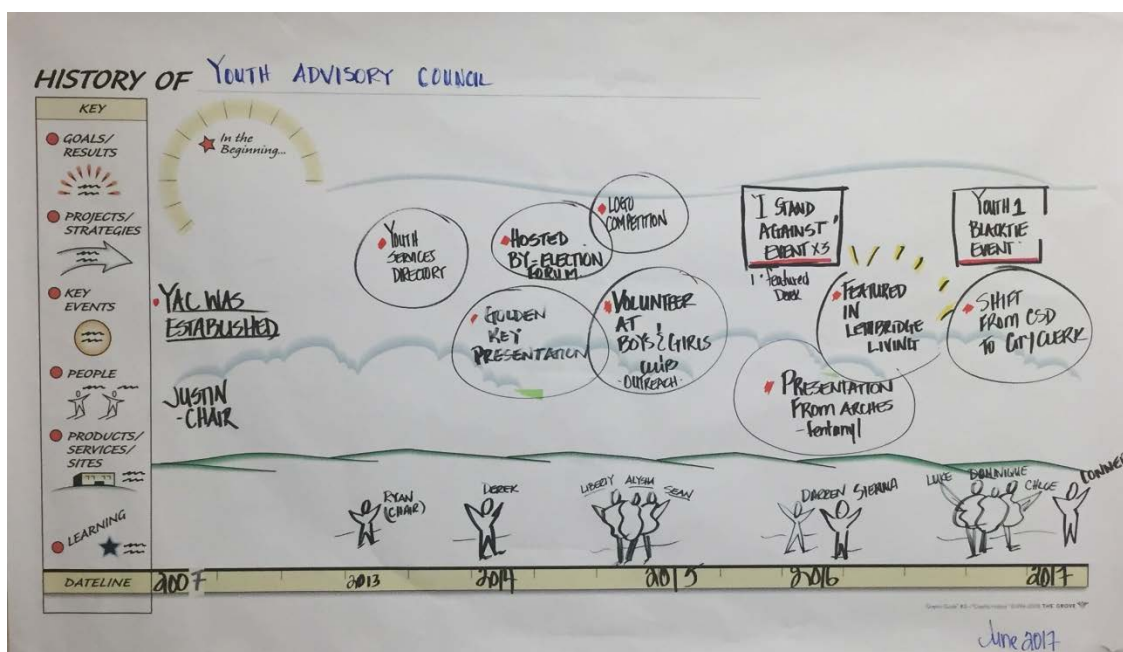 HISTORY OF YOUTH ADVISORY COUNCIL
KEY
GOALS/
RESULTS
PROJECTS/
STRATEGIES
KEY
EVENTS
PEOPLE
PRODUCTS/
SERVICES/
SITES
LEARNING
In the
Beginning...
YAC WAS
ESTABLISHED
JUSTIN
- CHAIR
YOUTH
SERVICES
DIRECTORY
HOSTED
BY-ELECTION
FORUM
LOGO
COMPETITION
GOLDEN
KEY
PRESENTATION
VOLUNTEER
AT
BOYS & GIRLS
OUTREACH
'I STAND
AGAINST'
EVENT X3
FEATURED
IN
LETHBRIDGE
LIVING
PRESENTATION
FROM ARCHES
- fentanyl
YOUTH 1
BLACKTIE
EVENT
SHIFT
FROM CSD
TO CITY CLERK
RYAN
(CHAIR)
DEREK
LIBERTY ALYSIA SEAN
DARREN SIERRA
LUKE DOMINIQUE CHLOE CONNER
DATELINE 2007 2013 2014 2015 2016 2017
THE GROVE
June 2017